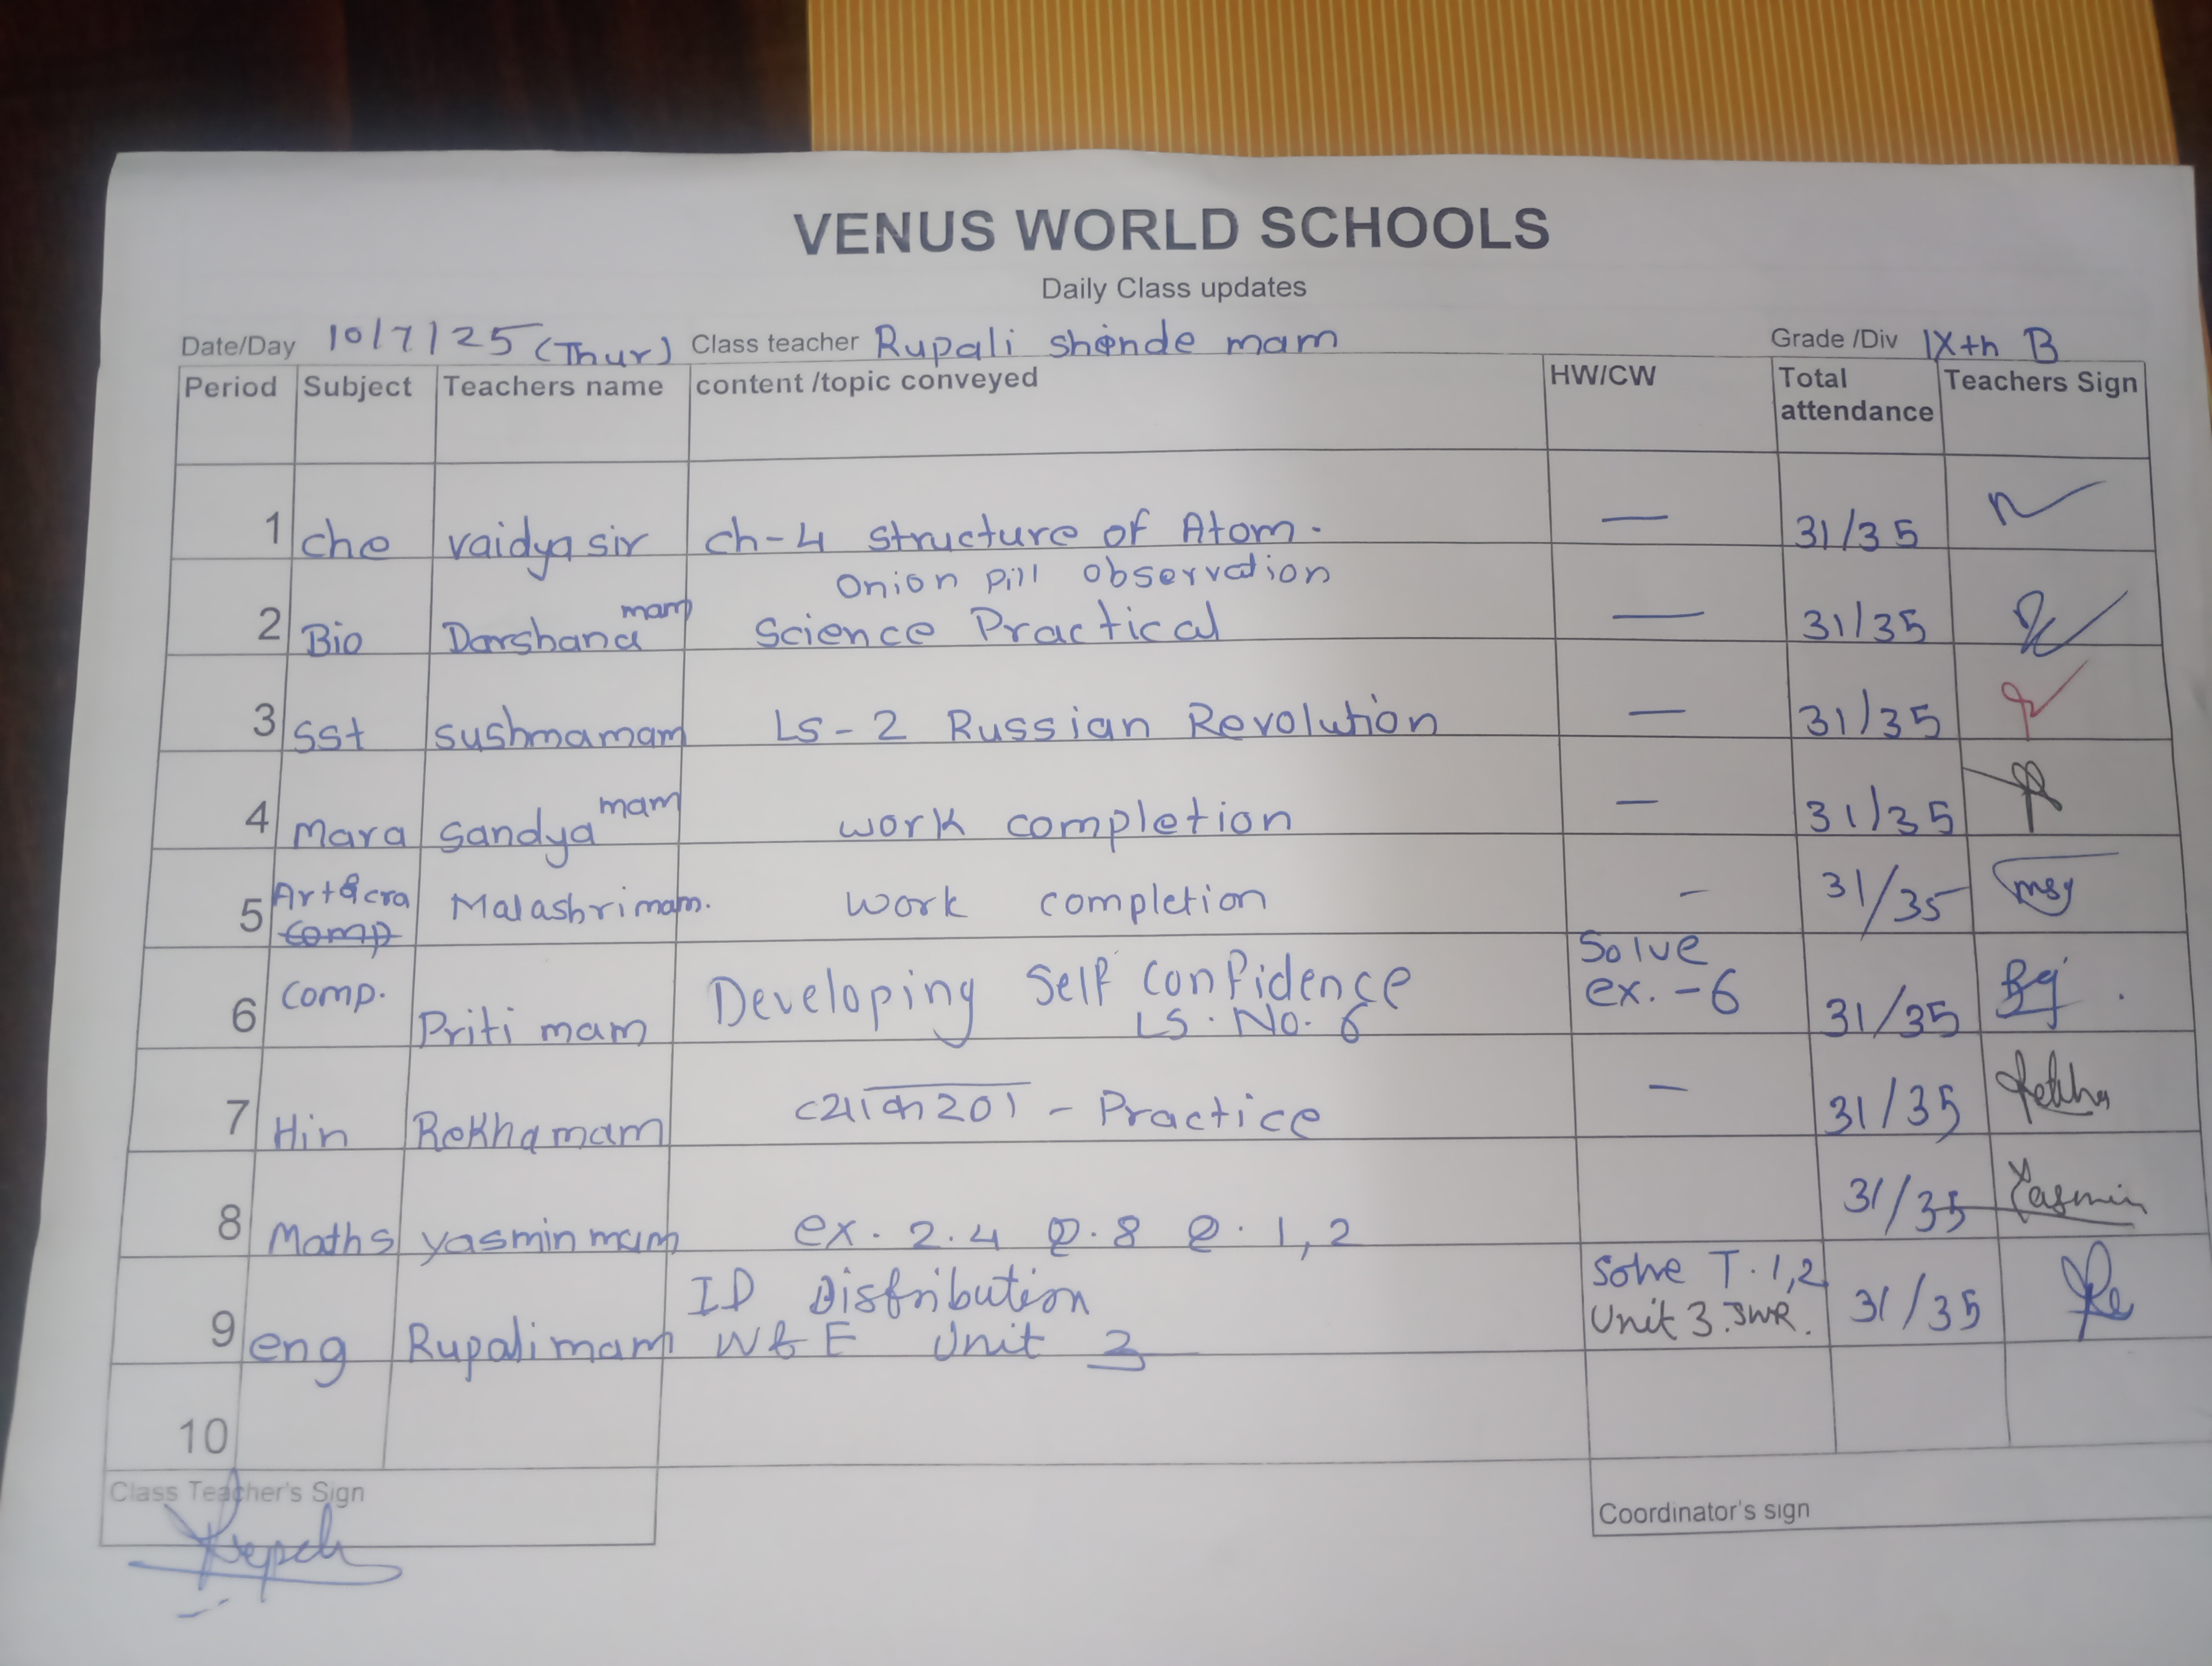 VENUS WORLD SCHOOLS
Daily Class updates
Date/Day 10/7/25 (Thur) Class teacher Rupali shinde mam Grade /Div IXth B
Period Subject Teachers name content /topic conveyed HW/CW Total attendance Teachers Sign
1 che vaidya sir ch-4 structure of Atom. — 31/35
Onion pill observation
2 Bio Darshana mam Science Practical — 31/35
3 SSt sushma mam LS-2 Russian Revolution — 31/35
4 Mara Sandya mam work completion — 31/35
5 Art & cra Malashri mam. work completion - 31/35
comp
6 Comp. Priti mam Developing Self Confidence Solve ex.-6 31/35
LS. No. 6
7 Hin Rekha mam व्याकरण - Practice — 31/35 Rekha
8 Maths yasmin mam ex. 2.4 Q.8 Q. 1,2 31/35 Yasmin
9 eng Rupali mam ID Distribution Solve T.1,2 31/35
W & E Unit 3 Unit 3.
10
Class Teacher's Sign
Coordinator's sign